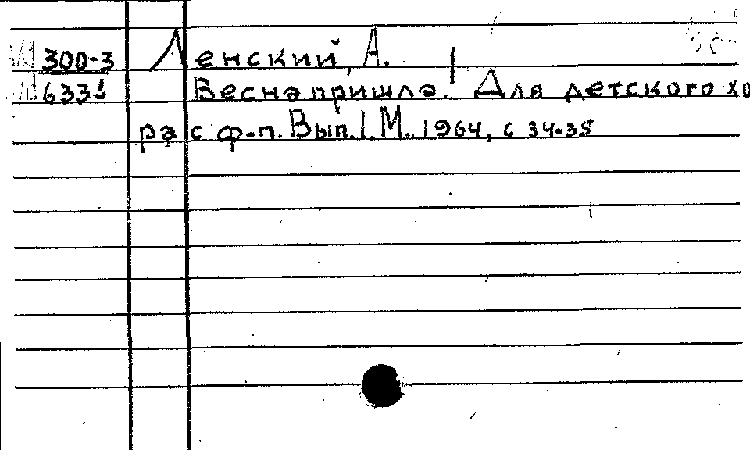 300-3 Ленский, А.
6331 Весна пришла! Для детского хо
ра с ф-п. Вып. I М. 1964, с 34-35